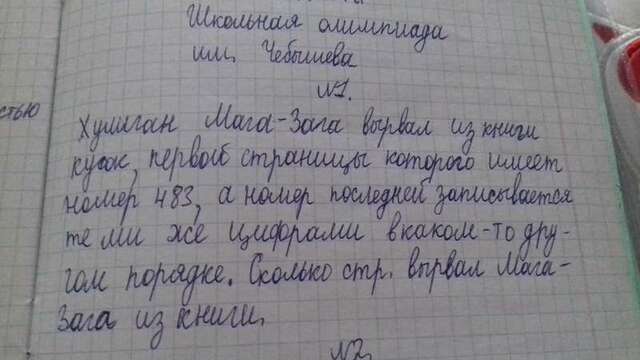 Школьная олимпиада
им. Чебышева
N1.
стью
Хулиган Мага-Зага вырвал из книги
кусок, первой страницы которого имеет
номер 483, а номер последней записывается
теми же цифрами в каком-то дру-
гом порядке. Сколько стр. вырвал Мага-
Зага из книги.
N2.